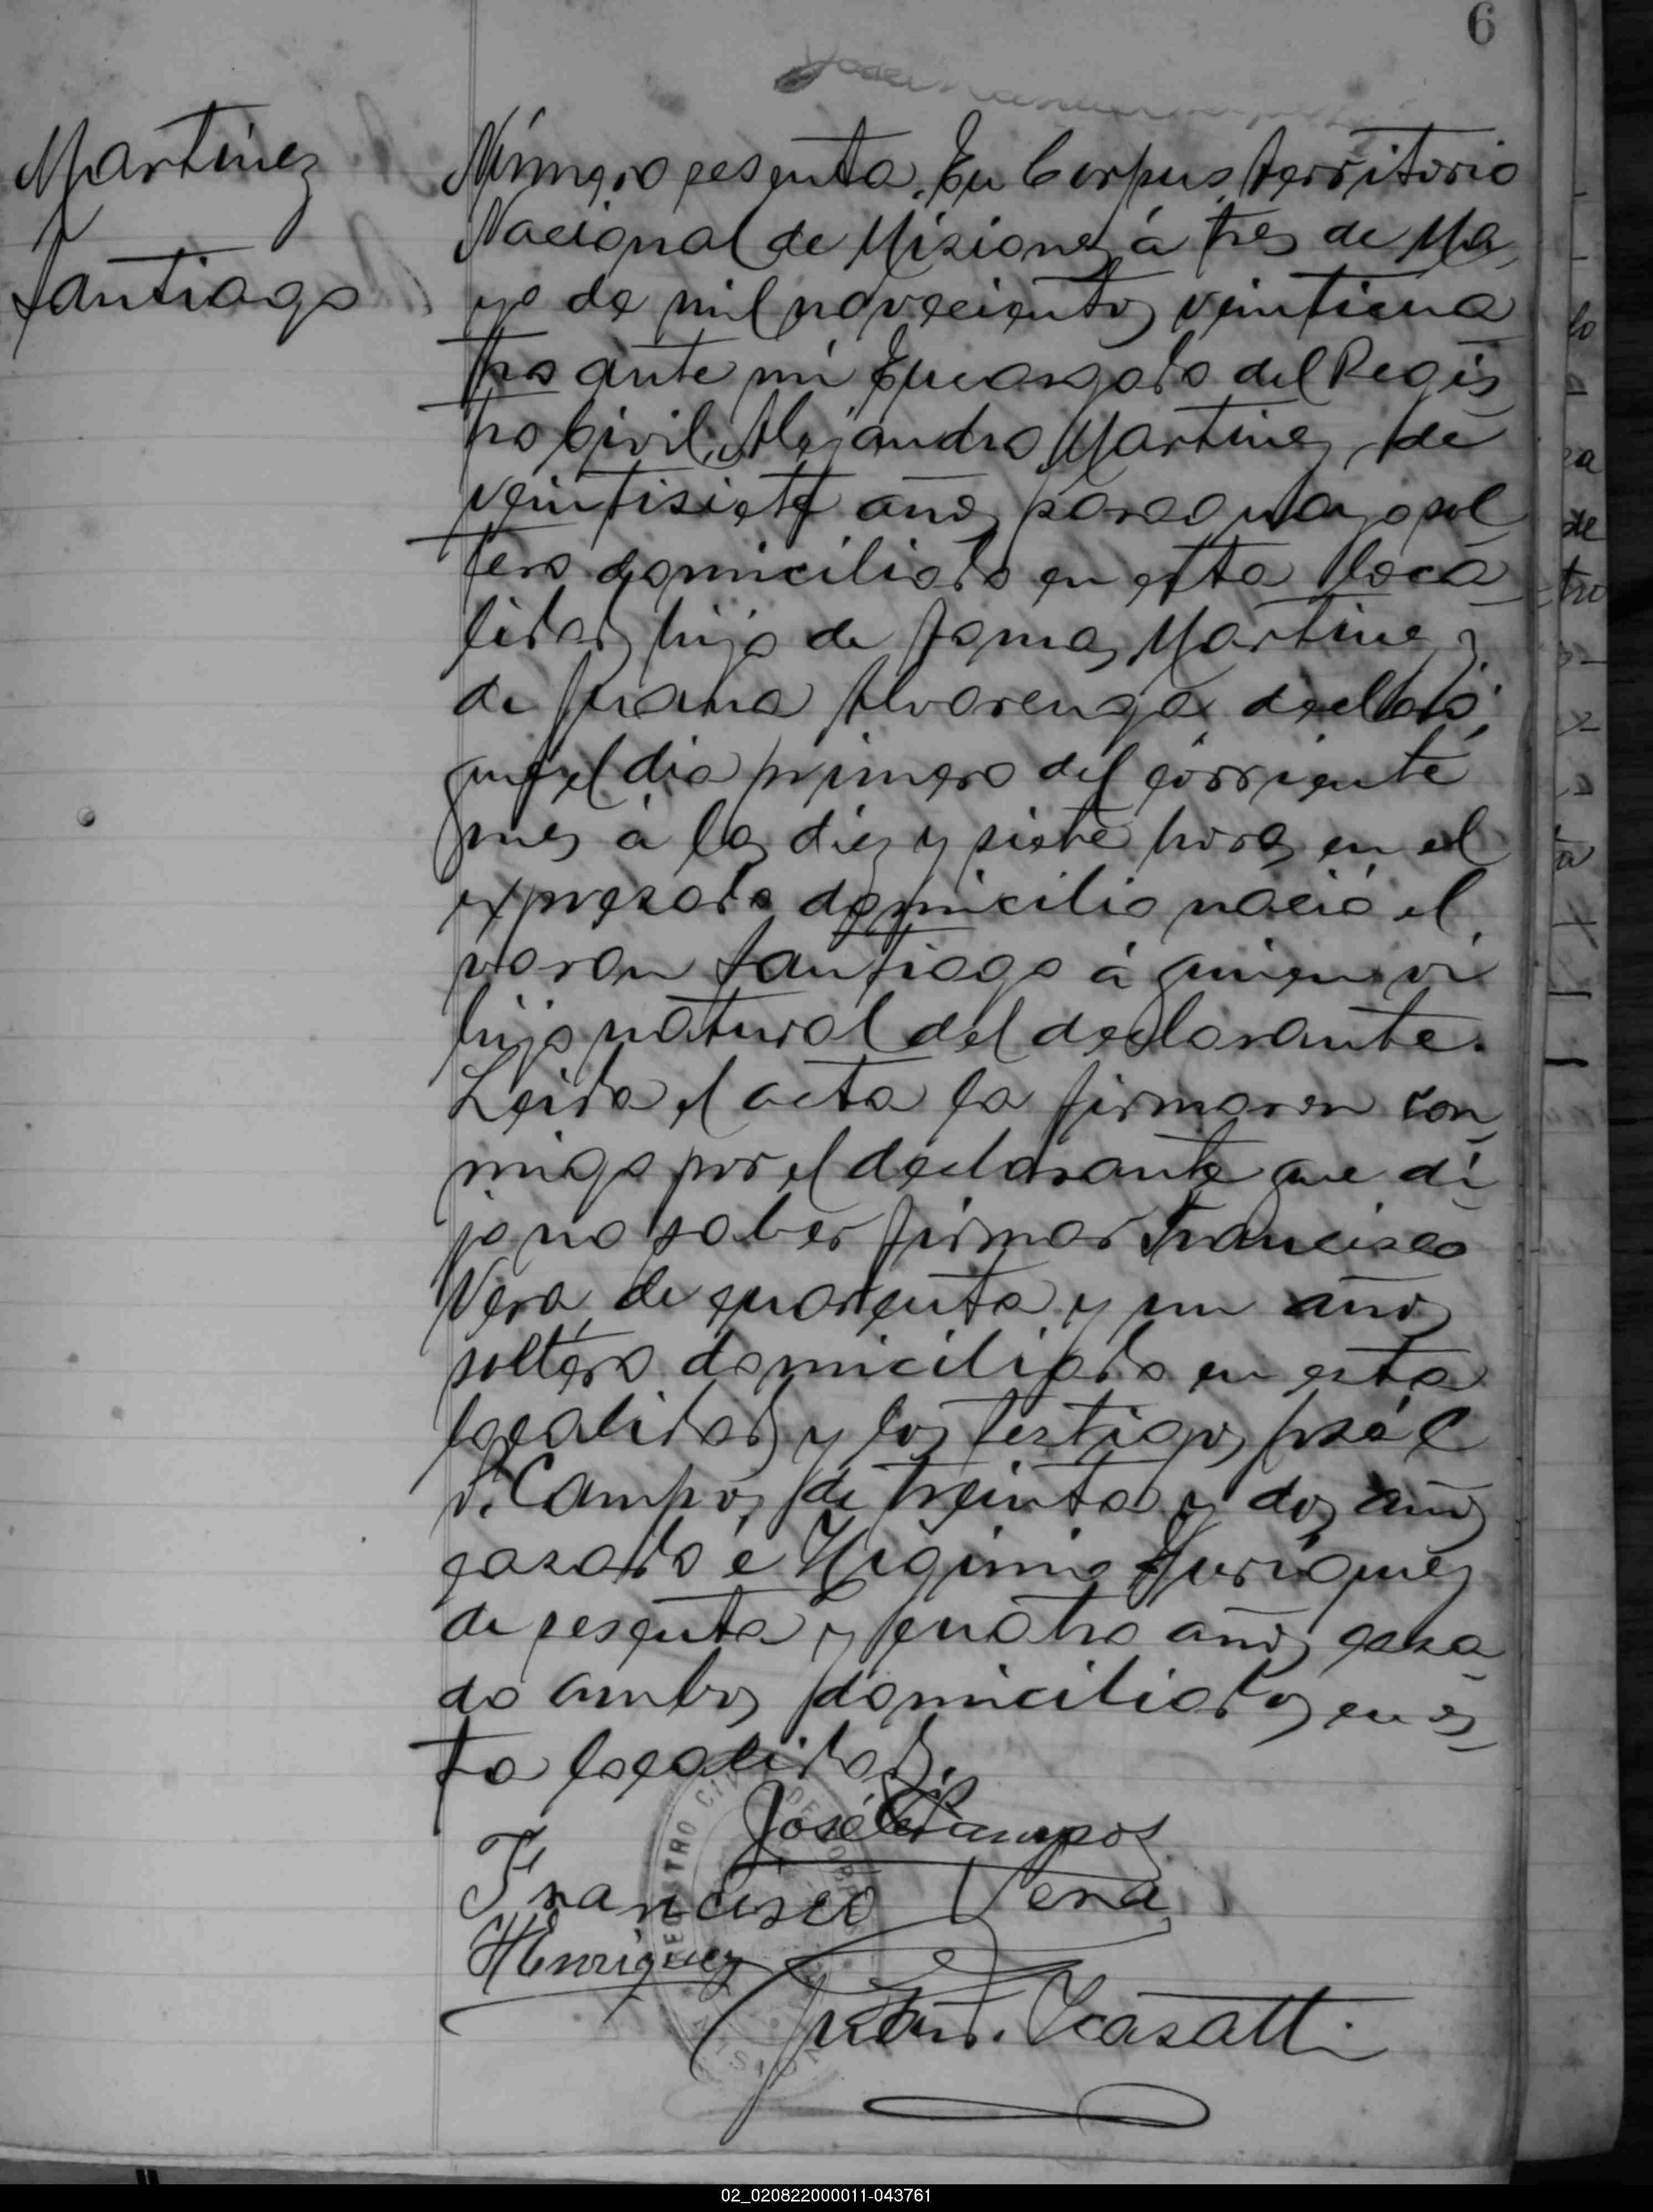 6
Martinez
Santiago
Número sesenta. En Corpus, territorio
Nacional de Misiones á tres de Ma
yo de mil novecientos veinticua
tro ante mi Encargado del Regis
tro Civil, Alejandro Martinez, de
veintisiete años, paraguayo, sol
tero domiciliado en esta loca
lidad, hijo de Tomas Martinez y
de Juana Alvarenga, declaró;
que el dia primero del corriente
mes á las diez y siete horas en el
expresado domicilio nació el
varon Santiago á quien vi
hijo natural del declarante.
Leida el acta la firmaron con
migo por el declarante que di
jo no saber firmar Francisco
Vera, de cuarenta y un años
soltero domiciliado en esta
localidad y los testigos José C
P. Campos, de treinta y dos años
casado é Higinio Henriquez
de sesenta y cuatro años casa
do ambos domiciliados en es
ta localidad.
José C Campos
Francisco Vera
HEnriquez
Casatti
REGISTRO CIVIL DE CORPUS
MISIONES
lo
za
de
tro
ta
02_020822000011-043761